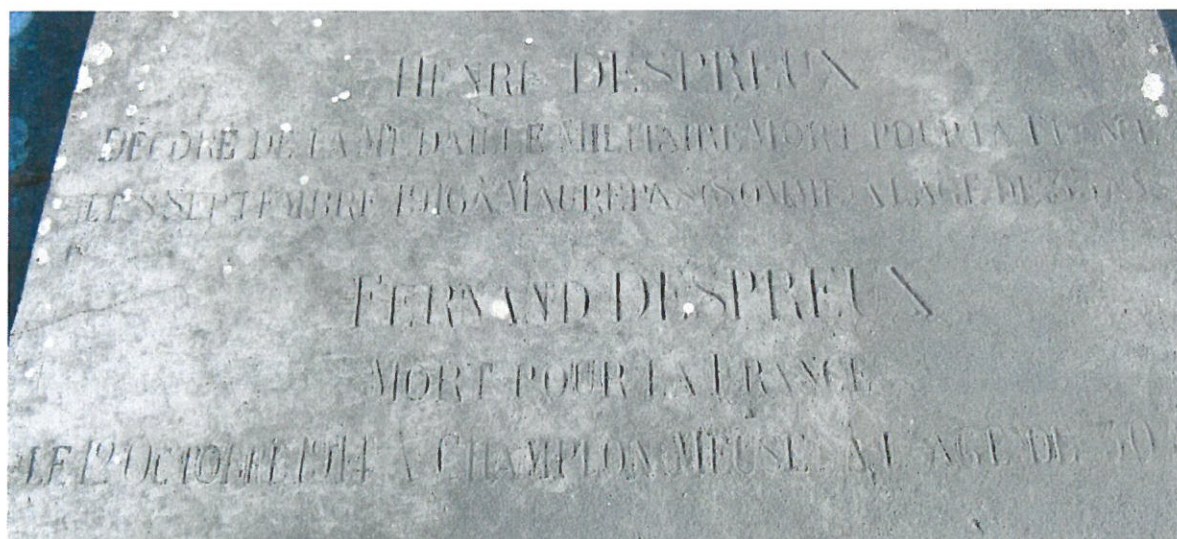 HENRI DESPREUX
DÉCORÉ DE LA MÉDAILLE MILITAIRE MORT POUR LA FRANCE
LE 8 SEPTEMBRE 1916 A MAUREPAS (SOMME) A L'AGE DE 35 ANS
FERNAND DESPREUX
MORT POUR LA FRANCE
LE 12 OCTOBRE 1914 A CHAMPLON MEUSE A L'AGE DE 30